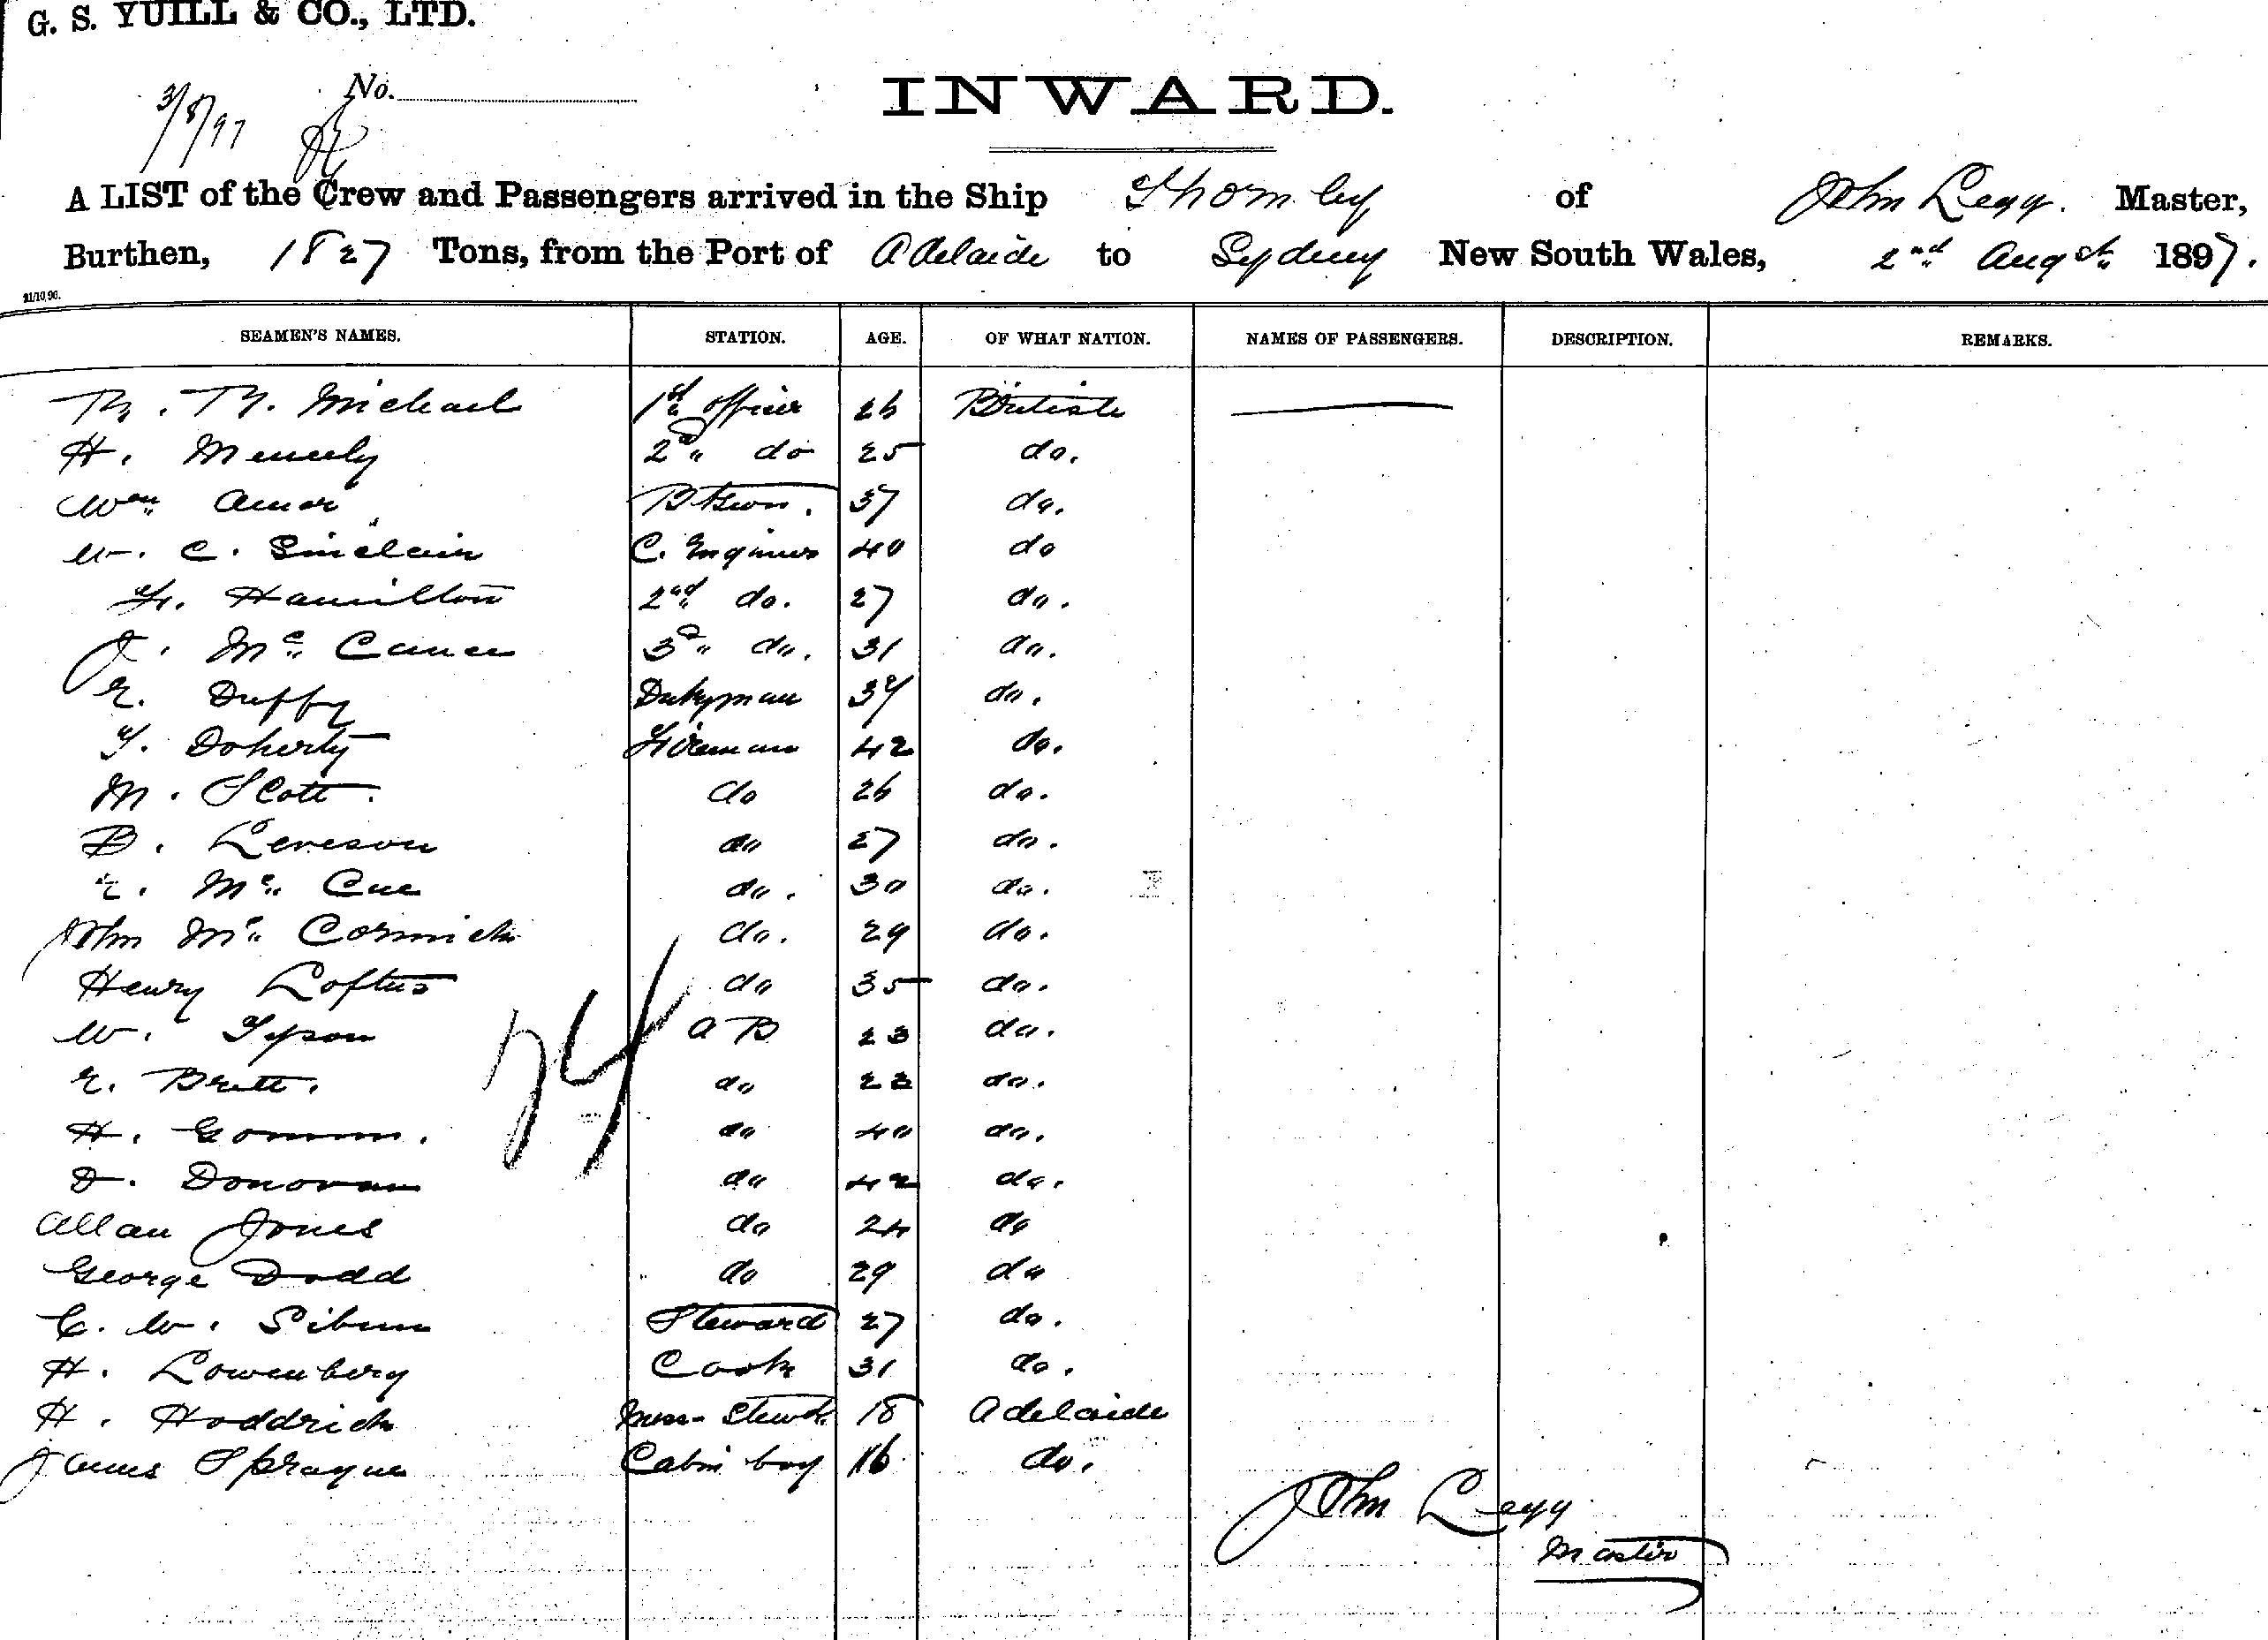 G. S. YUILL & CO., LTD.
No.
3/8/97
INWARD.
A LIST of the Crew and Passengers arrived in the Ship Thornley of John Legg. Master,
Burthen, 1827 Tons, from the Port of Adelaide to Sydney New South Wales, 2nd Augst 1897.
21/10/90.
SEAMEN'S NAMES. STATION. AGE. OF WHAT NATION. NAMES OF PASSENGERS. DESCRIPTION. REMARKS.
Michael 1st officer 26 British
H. 2d do 25 do.
Wm Amor 37 do.
W. C. Sinclair C. Engineer 40 do
Hamilton 2nd do. 27 do.
J. Mc 3d do. 31 do.
E. Duffy 34 do.
T. Doherty Fireman 42 do.
M. Scott. do 26 do.
B. Leveson do 27 do.
E. Mc Cue do. 30 do.
John Mc Cormick do. 29 do.
Henry Loftus do 35 do.
W. Tyson A B 23 do.
E. Brett. do 22 do.
H. do 40 do.
D. Donovan do 42 do.
Allan Jones do 24 do
George Dodd do 29 do
C. W. Steward 27 do.
H. Lowenberg Cook 31 do.
H. Hoddrick Mess-Stewd. 18 Adelaide
James Sprague Cabin boy 16 do.
24
John Legg
Master